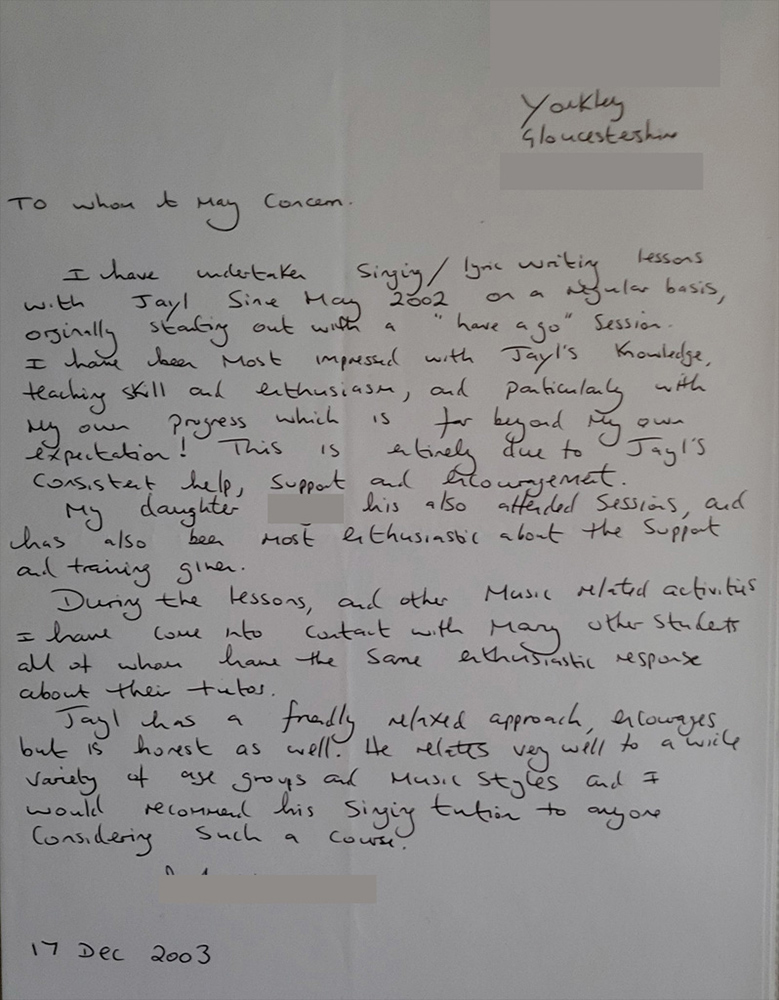 Yorkley
Gloucestershire
To whom it May Concern.
I have undertaken Singing/lyric writing lessons
with Jayl Since May 2002 on a regular basis,
orginally starting out with a "have a go" Session.
I have been Most impressed with Jayl's Knowledge,
teaching skill and enthusiasm, and particularly with
My own progress which is far beyond My own
expectation! This is entirely due to Jayl's
Consistent help, Support and encouragement.
My daughter his also attended Sessions, and
has also been most enthusiastic about the Support
and training given.
During the lessons, and other Music related activities
I have come into contact with Many other Students
all of whom have the Same enthusiastic response
about their tutor.
Jayl has a friendly relaxed approach, encourages
but is honest as well. He relates very well to a wide
variety of age groups and Music Styles and I
would recommend his Singing tution to anyone
Considering Such a Course.
17 Dec 2003